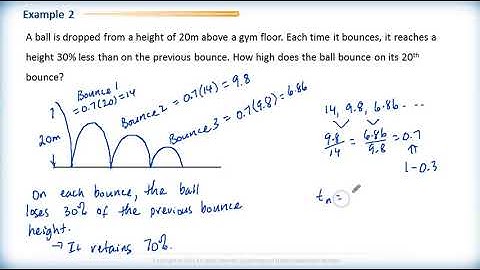 Example 2
A ball is dropped from a height of 20m above a gym floor. Each time it bounces, it reaches a
height 30% less than on the previous bounce. How high does the ball bounce on its 20th
bounce?
Bounce 1
= 0.7(20) = 14
Bounce 2 = 0.7(14) = 9.8
Bounce 3 = 0.7(9.8) = 6.86
20m
14, 9.8, 6.86 ...
9.8/14 = 6.86/9.8 = 0.7
1-0.3
On each bounce, the ball
loses 30% of the previous bounce
height.
→ It retains 70%.
tn =